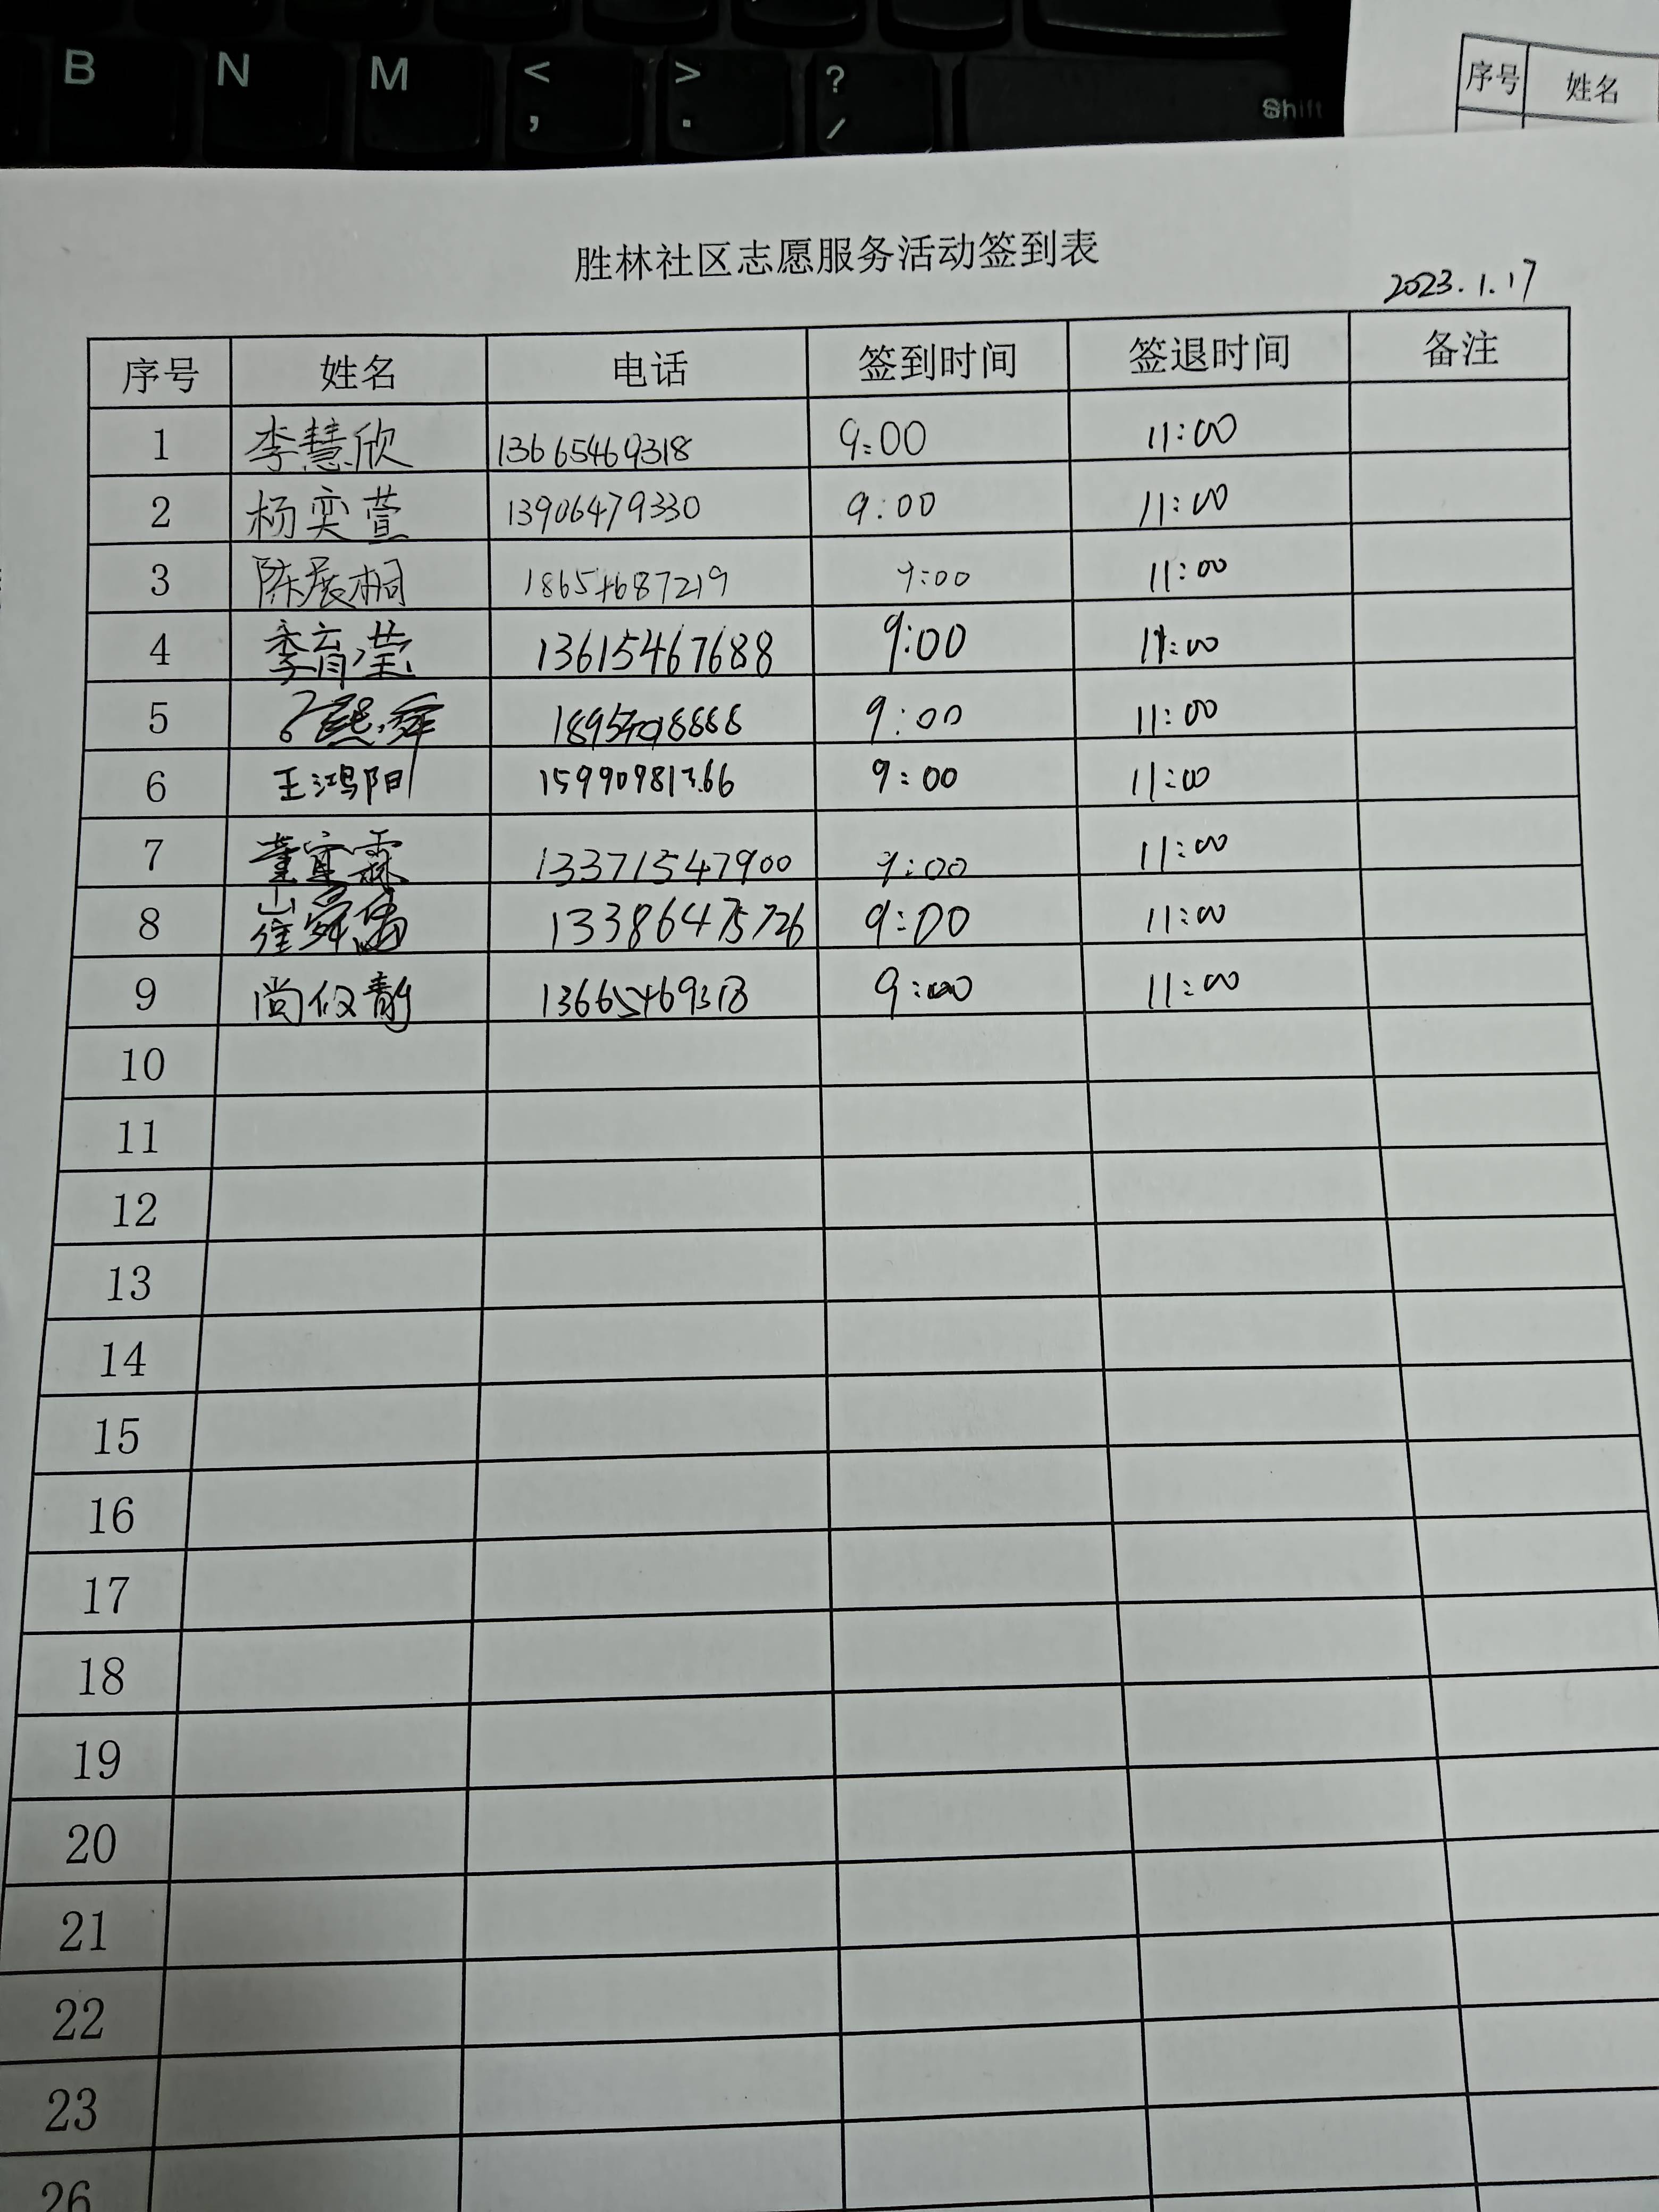 B N M < , > . ? / Shift
序号 姓名
胜林社区志愿服务活动签到表
2023.1.17
序号 姓名 电话 签到时间 签退时间 备注
1 李慧欣 13665469318 9:00 11:00
2 杨奕萱 13906479330 9:00 11:00
3 陈展桐 18654687219 9:00 11:00
4 李育莹 13615467688 9:00 11:00
5 9:00 11:00
6 王鸿阳 15990981366 9:00 11:00
7 董宜霖 13371547900 9:00 11:00
8 崔舜 13386475726 9:00 11:00
9 尚仪静 13665469318 9:00 11:00
10
11
12
13
14
15
16
17
18
19
20
21
22
23
26